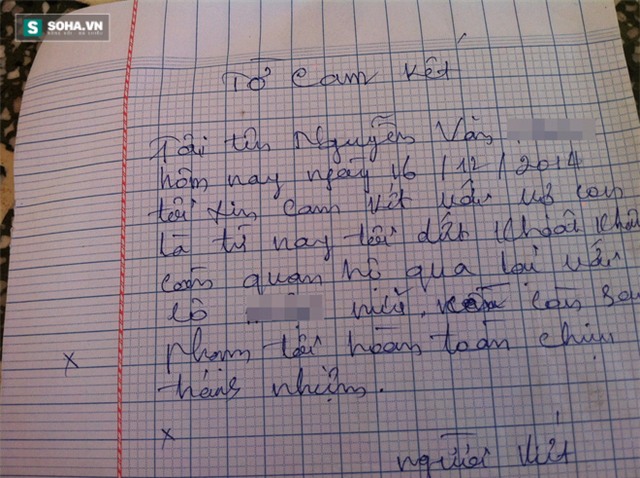 SOHA.VN
Tờ cam kết
Tôi tên Nguyễn Văn
hôm nay ngày 16 / 12 / 2014
tôi xin cam kết với mẹ con
là từ nay tôi dứt khoát không
còn quan hệ qua lại với
cô nữa. còn sai
phạm tôi hoàn toàn chịu
tháng nhiệm.
người viết